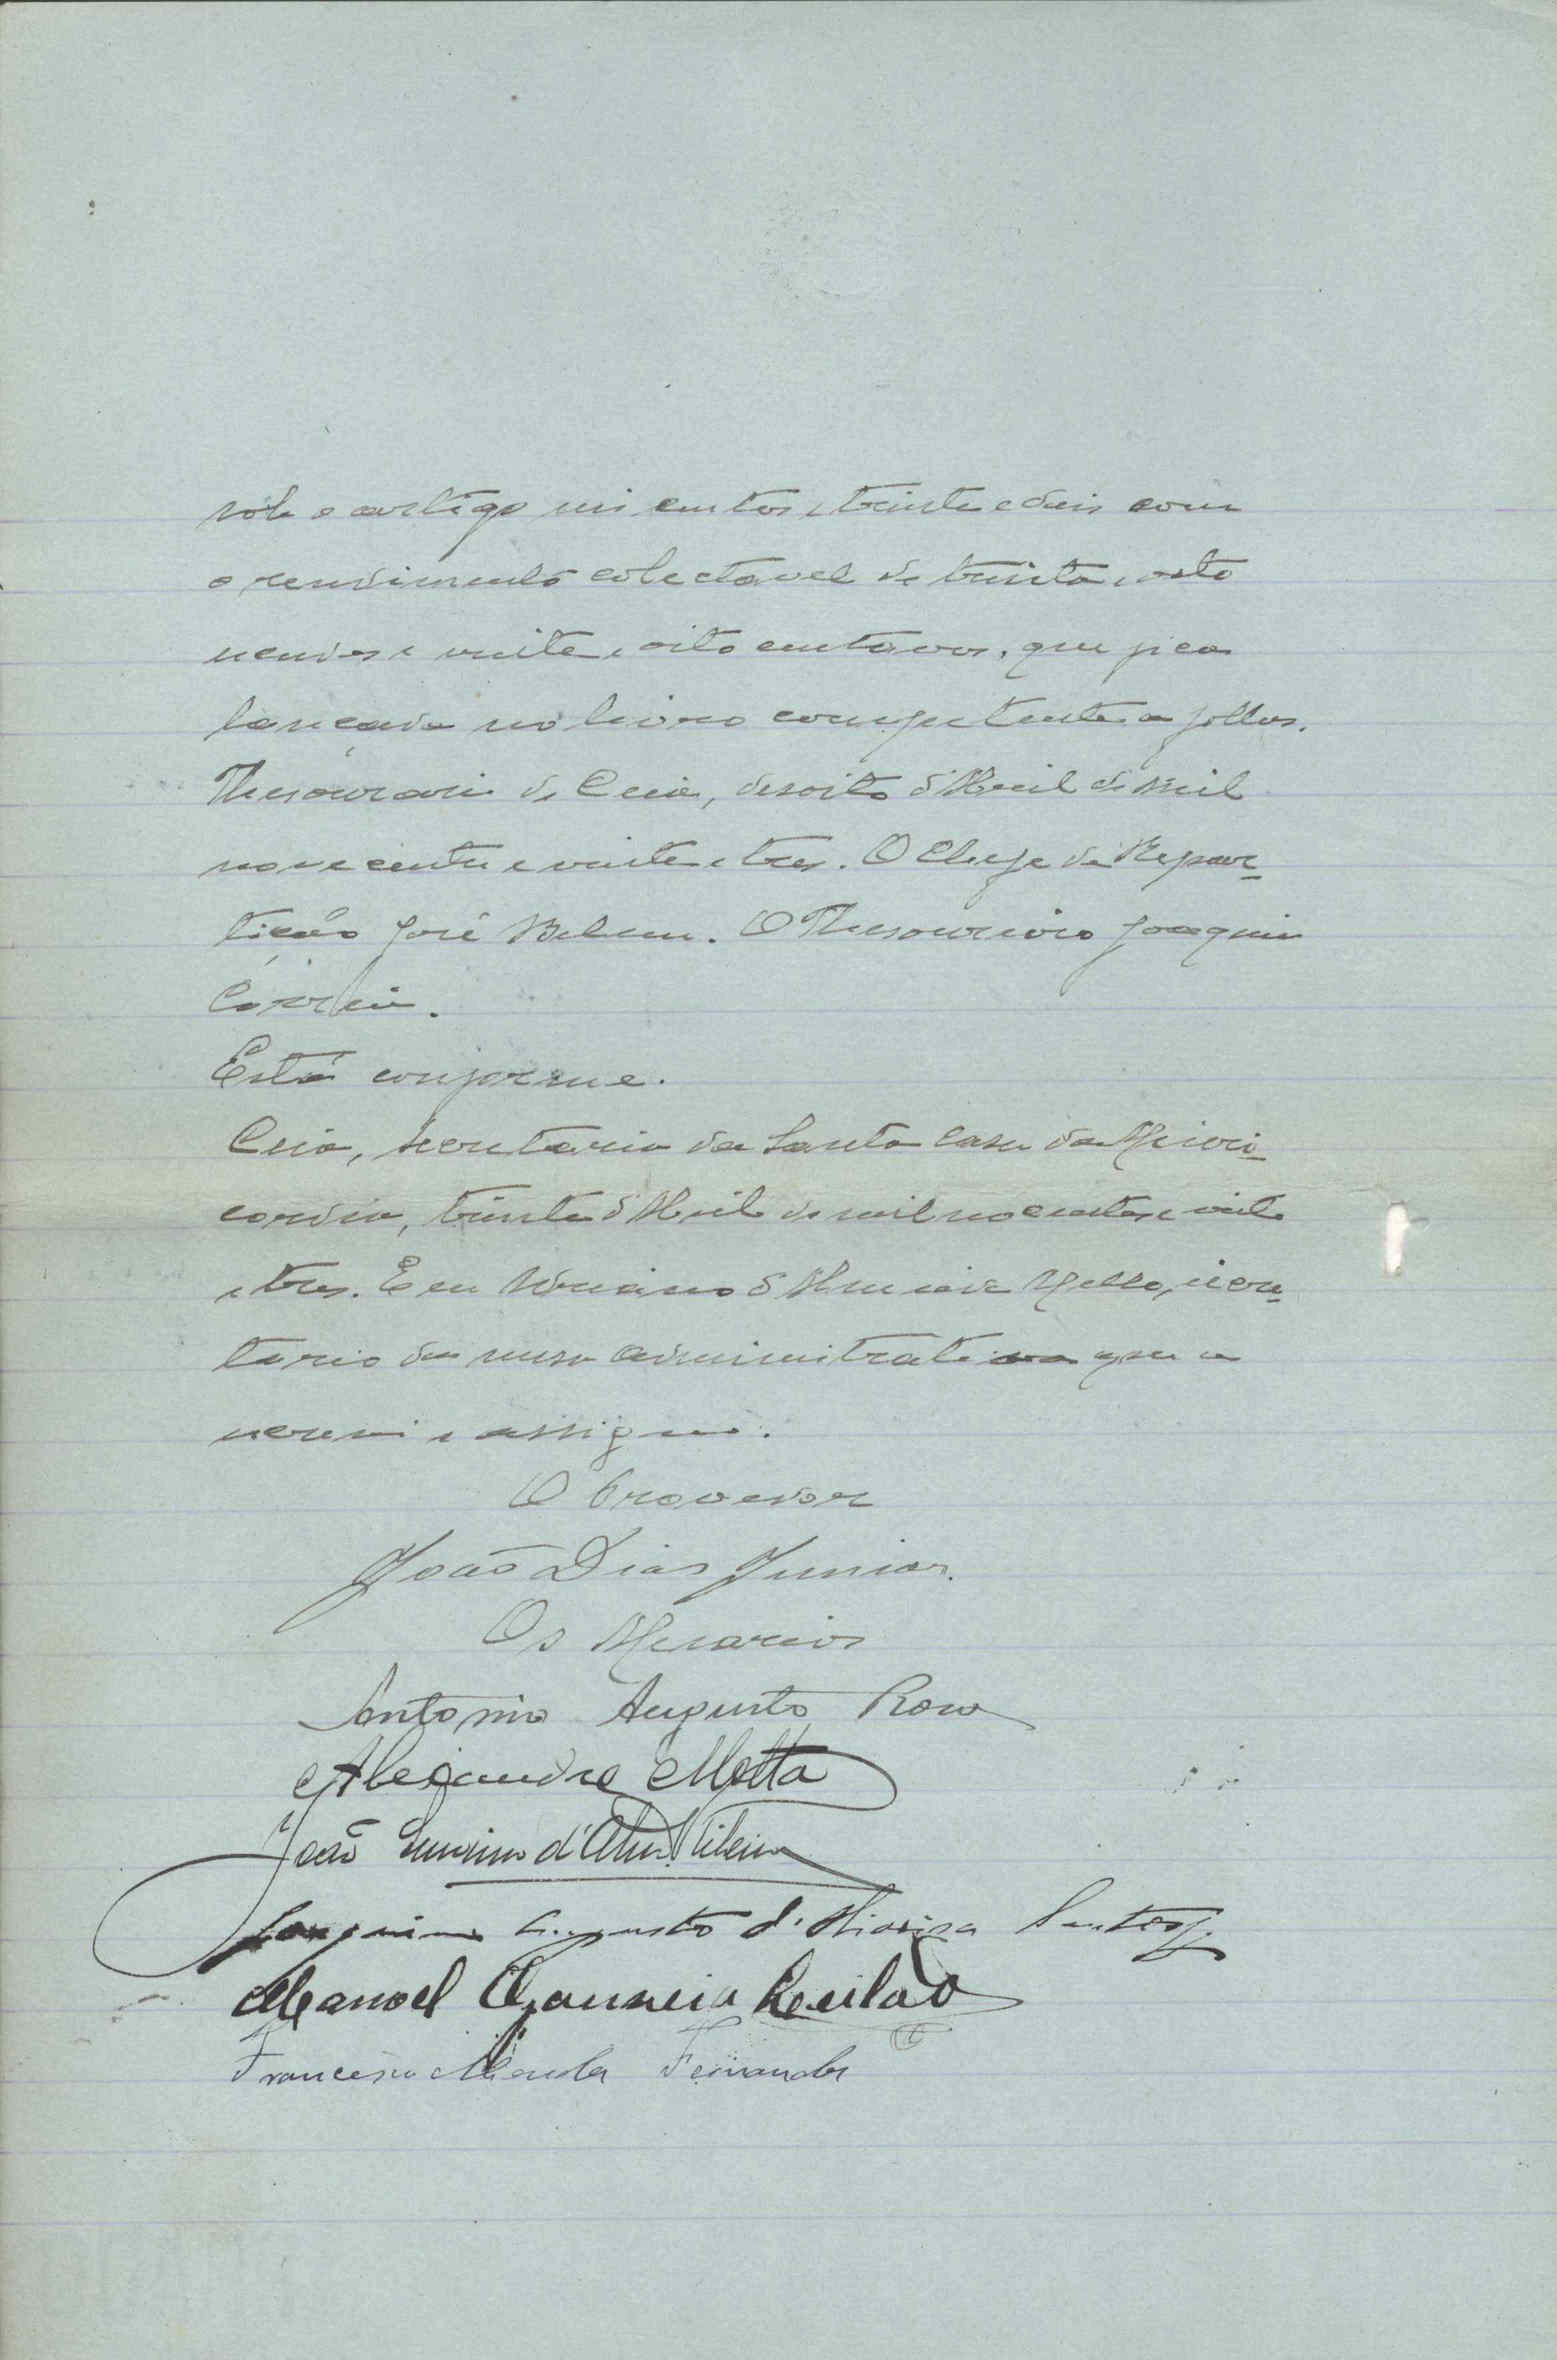 sob o artigo seis centos e trinta e dois com
o rendimento colectavel de trinta e oito
escudos e vinte e oito centavos, que fica
lançada no livro competente a folhas.
Thesouraria de Ceia, desoito d'Abril de mil
novecentos e vinte e tres. O Chefe da Repar-
tição José Belem. O Thesoureiro Joaquim
Correia.
Está conforme.
Ceia, secretaria da Santa Casa da Miseri-
cordia, trinta d'Abril de mil nocentos e vinte
e tres. E eu d'Almeida Mello, secre-
tario da mesa administrativa que a
escrevi e assigno.
O Provedor
João Dias Junior.
Os Mesarios
Antonio Augusto
Alexandre Motta
João d'Alm. Ribeiro
Joaquim Augusto d'Oliveira Santos
Manoel
Francisco Mendes Fernandes